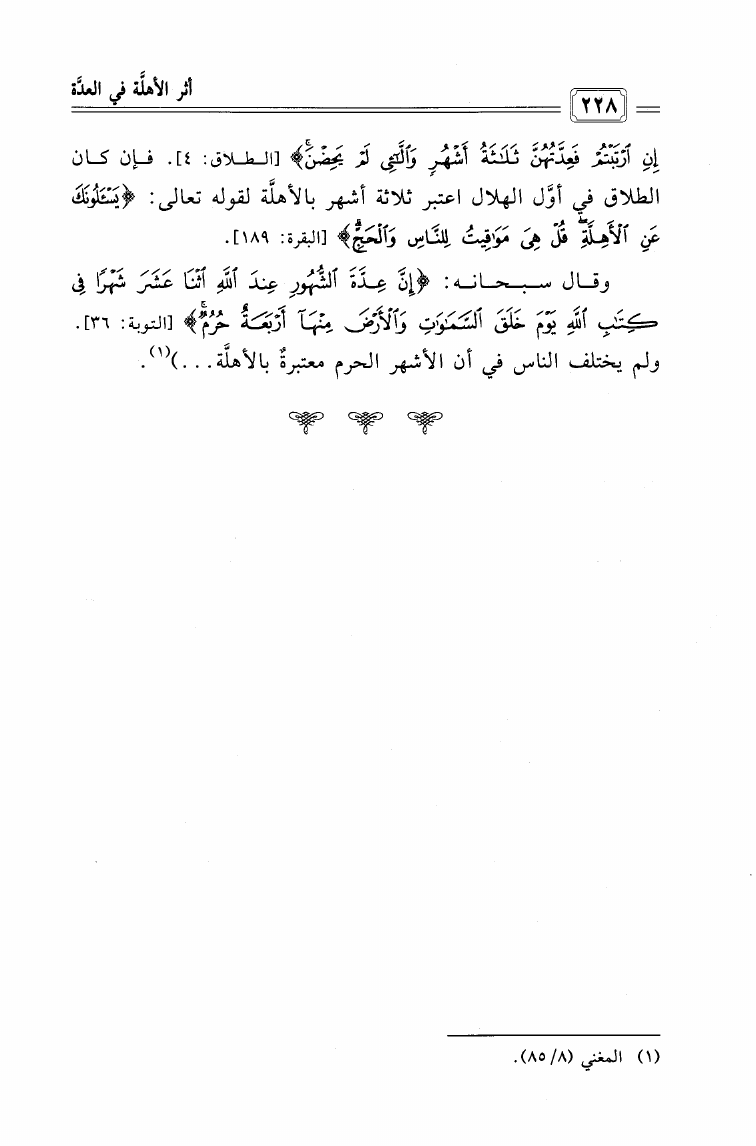 أثر الأهلَّة في العدَّة
٢٢٨
إِنِ ٱرْتَبْتُمْ فَعِدَّتُهُنَّ ثَلَٰثَةُ أَشْهُرٍ وَٱلَّٰٓـِٔى لَمْ يَحِضْنَ ۚ﴾ [الطلاق: ٤]. فإن كان
الطلاق في أوَّل الهلال اعتبر ثلاثة أشهر بالأهلَّة لقوله تعالى: ﴿يَسْـَٔلُونَكَ
عَنِ ٱلْأَهِلَّةِ ۖ قُلْ هِىَ مَوَٰقِيتُ لِلنَّاسِ وَٱلْحَجِّ ۗ﴾ [البقرة: ١٨٩].
وقال سبحانه: ﴿إِنَّ عِدَّةَ ٱلشُّهُورِ عِندَ ٱللَّهِ ٱثْنَا عَشَرَ شَهْرًا فِى
كِتَٰبِ ٱللَّهِ يَوْمَ خَلَقَ ٱلسَّمَٰوَٰتِ وَٱلْأَرْضَ مِنْهَآ أَرْبَعَةٌ حُرُمٌ ۚ﴾ [التوبة: ٣٦].
ولم يختلف الناس في أن الأشهر الحرم معتبرةٌ بالأهلَّة...)(١).
(١) المغني (٨/ ٨٥).